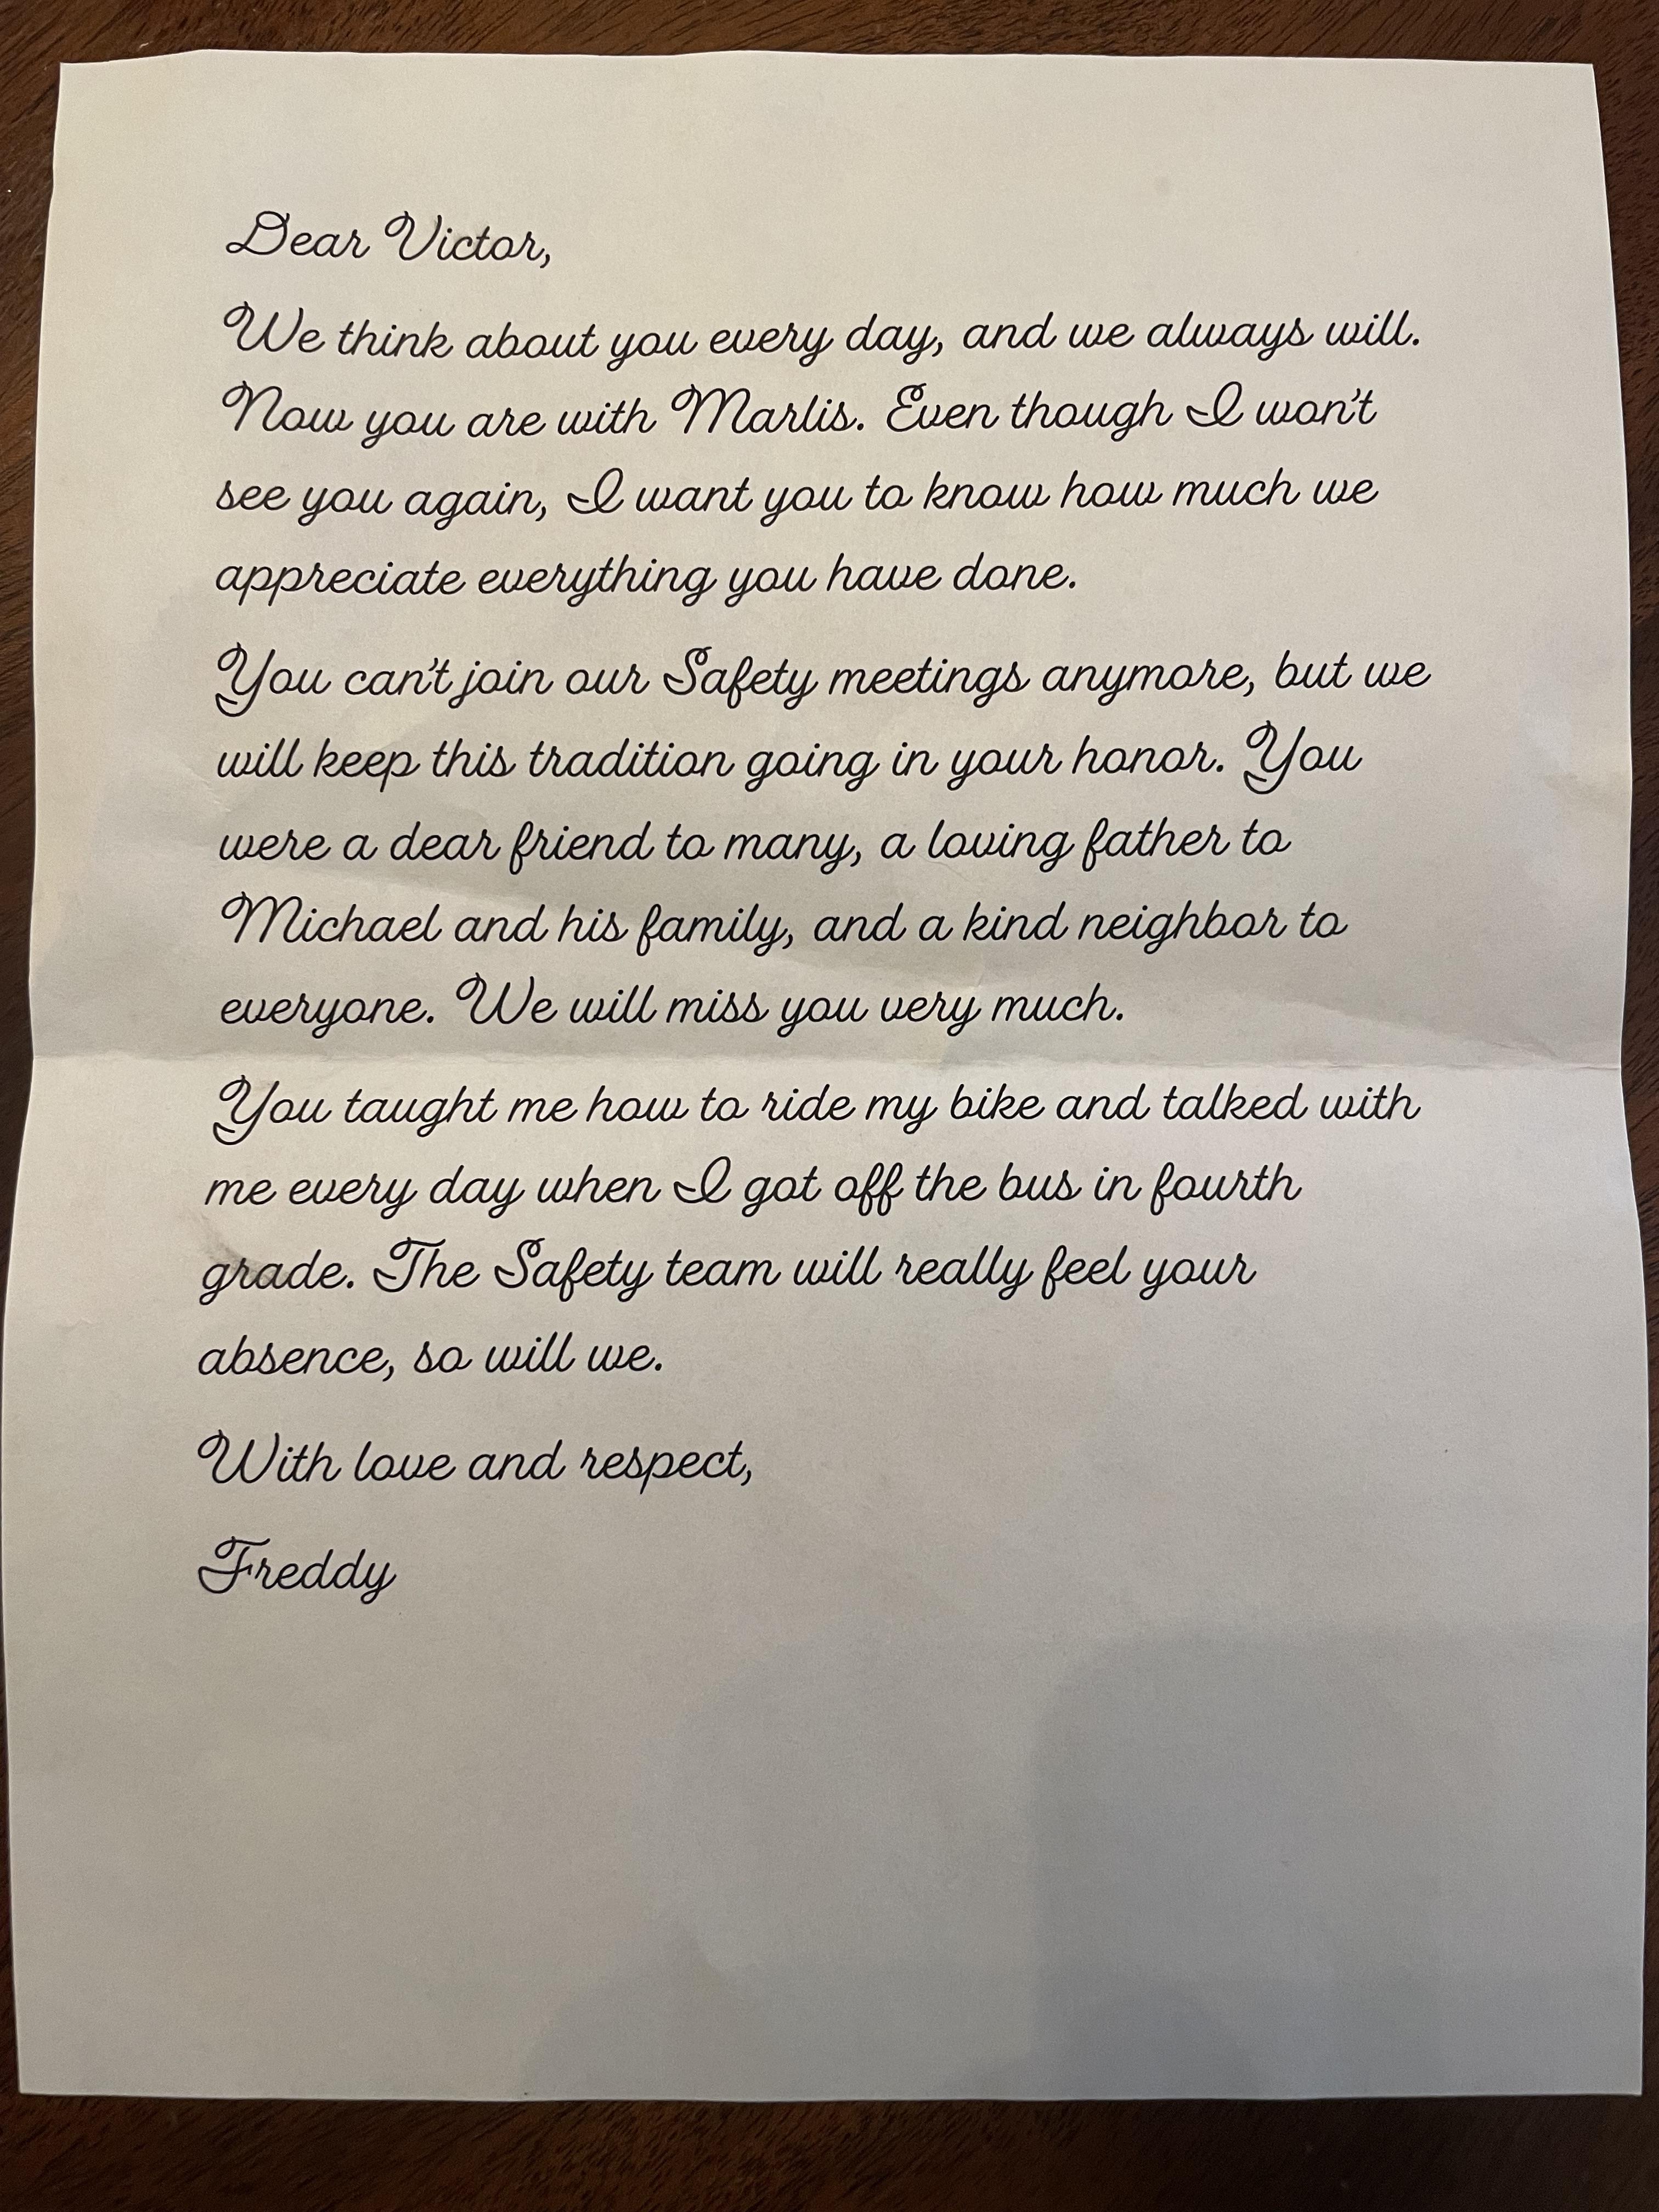 Dear Victor,
We think about you every day, and we always will.
Now you are with Marlis. Even though I won't
see you again, I want you to know how much we
appreciate everything you have done.
You can't join our Safety meetings anymore, but we
will keep this tradition going in your honor. You
were a dear friend to many, a loving father to
Michael and his family, and a kind neighbor to
everyone. We will miss you very much.
You taught me how to ride my bike and talked with
me every day when I got off the bus in fourth
grade. The Safety team will really feel your
absence, so will we.
With love and respect,
Freddy